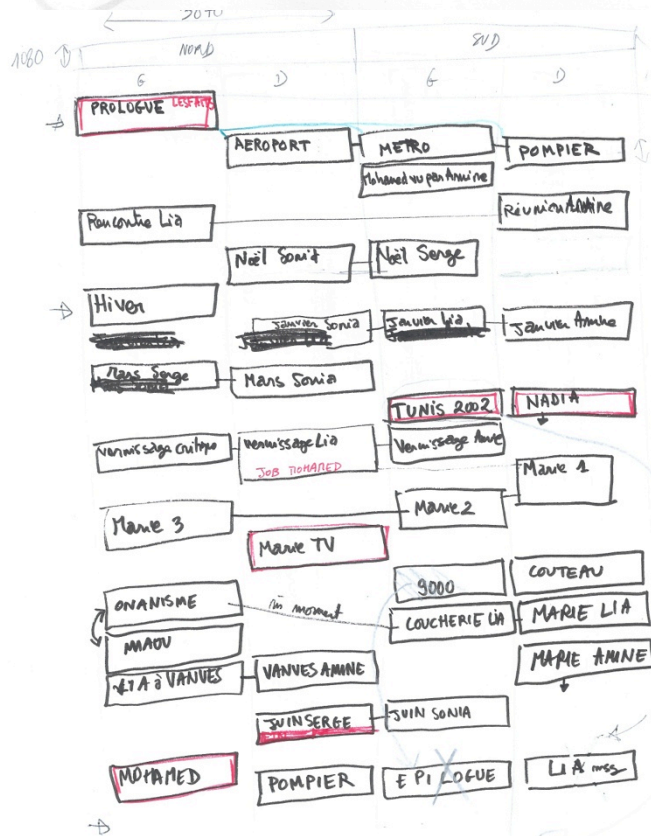 1080
NORD SUD
G D G D
PROLOGUE LES FAITS
AEROPORT METRO POMPIER
Mohamed vu par Amine
Rencontre Lia Réunion Amine
Noël Sonia Noël Serge
Hiver
Janvier Sonia Janvier Lia Janvier Amine
Mars Serge Mars Sonia
TUNIS 2002 NADIA
vernissage critique vernissage Lia Vernissage
JOB MOHAMED
Marie 1
Marie 3 Marie 2
Marie TV
9000 COUTEAU
ONANISME moment COUCHERIE LIA MARIE LIA
MIAOU MARIE AMINE
LIA à VANVES VANVES AMINE
JUIN SERGE JUIN SONIA
MOHAMED POMPIER EPILOGUE LIA msg